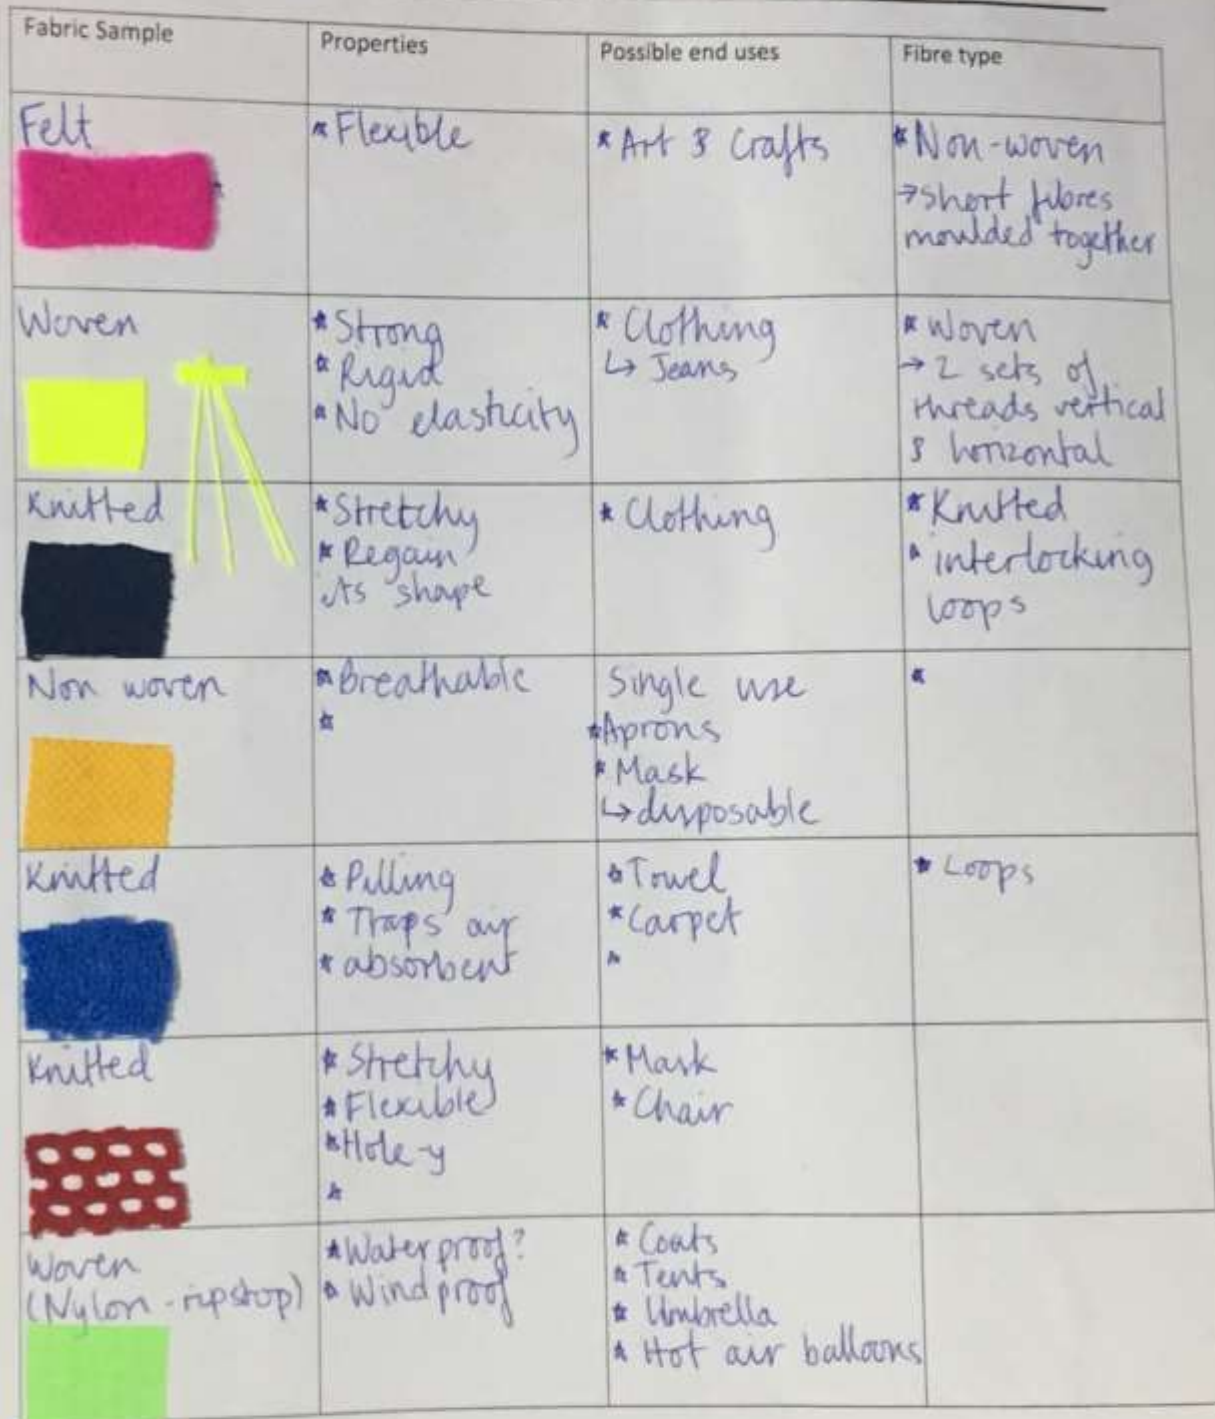 Fabric Sample
Properties
Possible end uses
Fibre type
Felt
* Flexible
* Art & Crafts
* Non-woven
→ short fibres
moulded together
Woven
* Strong
* Rigid
* No elasticity
* Clothing
↳ Jeans
* Woven
→ 2 sets of
threads vertical
& horizontal
Knitted
* Stretchy
* Regain
its shape
* Clothing
* Knitted
* interlocking
loops
Non woven
* Breathable
*
Single use
* Aprons
* Mask
↳ disposable
*
Knitted
* Pilling
* Traps air
* absorbent
* Towel
* Carpet
*
* Loops
Knitted
* Stretchy
* Flexible
* Hole-y
*
* Mask
* Chair
Woven
(Nylon-ripstop)
* Waterproof?
* Windproof
* Coats
* Tents
* Umbrella
* Hot air balloons